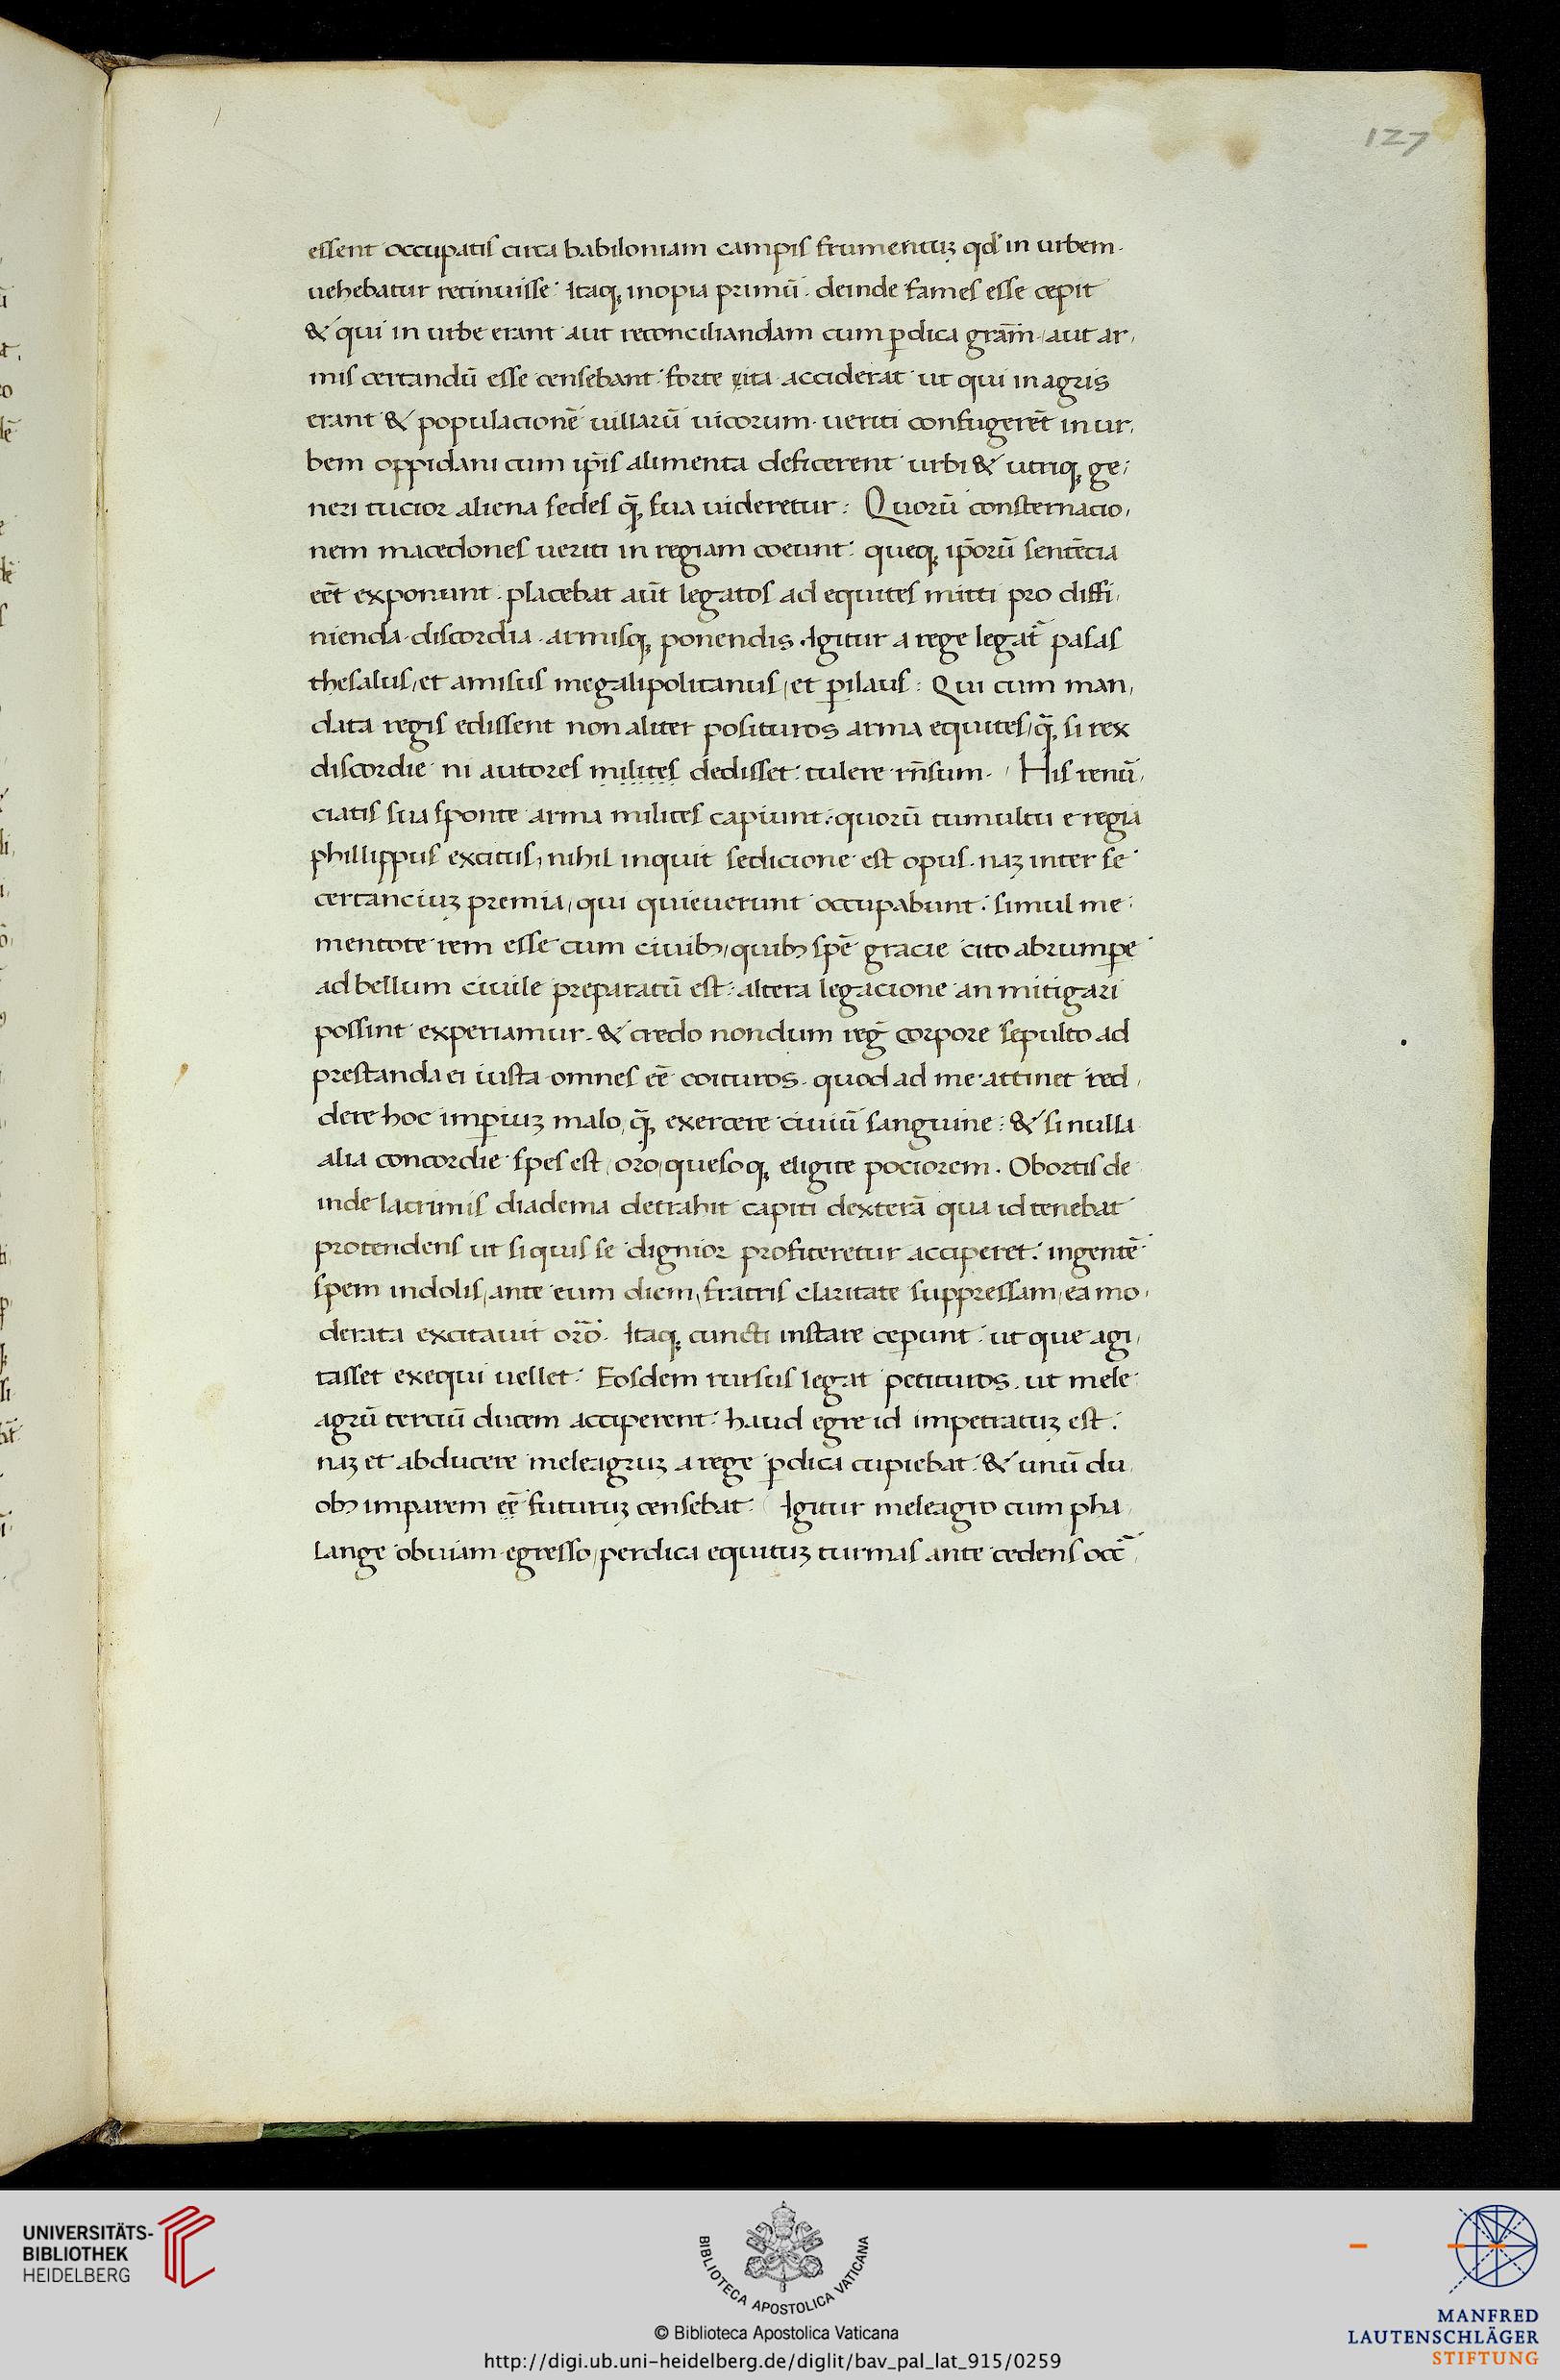 127
essent occupatis circa babiloniam campis frumentuꝫ qđ in urbem
uehebatur retinuisse· Itaqꝫ inopia primū· deinde fames esse cepit
& qui in urbe erant aut reconciliandam cum ꝑdica gr̄am· aut ar,
mis certandū esse censebant· forte ita acciderat ut qui in agris
erant & populacionē uillarū uicorum· ueriti confugerēt in ur,
bem oppidani cum ip̄is alimenta deficerent urbi & utriqꝫ ge,
neri tucior aliena sedes qꝫ̄ sua uideretur: Quorū consternacio,
nem macedones ueriti in regiam coeunt: queqꝫ ip̄orū sentētia
eēt exponunt· placebat aūt legatos ad equites mitti pro diffi,
nienda discordia· armisqꝫ ponendis· Igitur a rege legat̄ pasas
thesalus, et amisus megalipolitanus, et ꝑilaus: Qui cum man,
data regis edissent non aliter posituros arma equites, qꝫ̄ si rex
discordie ni autores milites dedisset· tulere rn̄sum· His renū,
ciatis sua sponte arma milites capiunt: quorū tumultu e regia
phillippus excitus, nihil inquit sedicione est opus· naꝫ inter se
certanciuꝫ premia, qui quieuerunt occupabunt: simul me:
mentote rem esse cum ciuibꝫ, quibꝫ spē gracie cito abrumꝑe
ad bellum ciuile preparatū est: altera legacione an mitigari
possint experiamur· & credo nondum reḡ corpore sepulto ad
prestanda ei iusta omnes eē coituros· quod ad me attinet red,
dere hoc imꝑiuꝫ malo, qꝫ̄ exercere ciuiū sanguine: & si nulla
alia concordie spes est, oro, quesoqꝫ eligite pociorem· Obortis de
inde lacrimis diadema detrahit capiti dexterā qua id tenebat
protendens ut si quis se dignior profiteretur acciperet: ingentē
spem indolis, ante eum diem, fratris claritate suppressam, ea mo,
derata excitauit or̄o· Itaqꝫ cuncti instare ceꝑunt· ut que agi,
tasset exequi uellet: Eosdem rursus legat petituros· ut mele
agrū terciū ducem acciperent: haud egre id impetratuꝫ est:
naꝫ et abducere meleagruꝫ a rege ꝑdica cupiebat· & unū du
obꝫ imparem eē futuruꝫ censebat· Igitur meleagro cum pha,
lange obuiam egresso, perdica equituꝫ turmas ante cedens occ̄,
UNIVERSITÄTS-
BIBLIOTHEK
HEIDELBERG
BIBLIOTECA APOSTOLICA VATICANA
© Biblioteca Apostolica Vaticana
http://digi.ub.uni-heidelberg.de/diglit/bav_pal_lat_915/0259
MANFRED
LAUTENSCHLÄGER
STIFTUNG